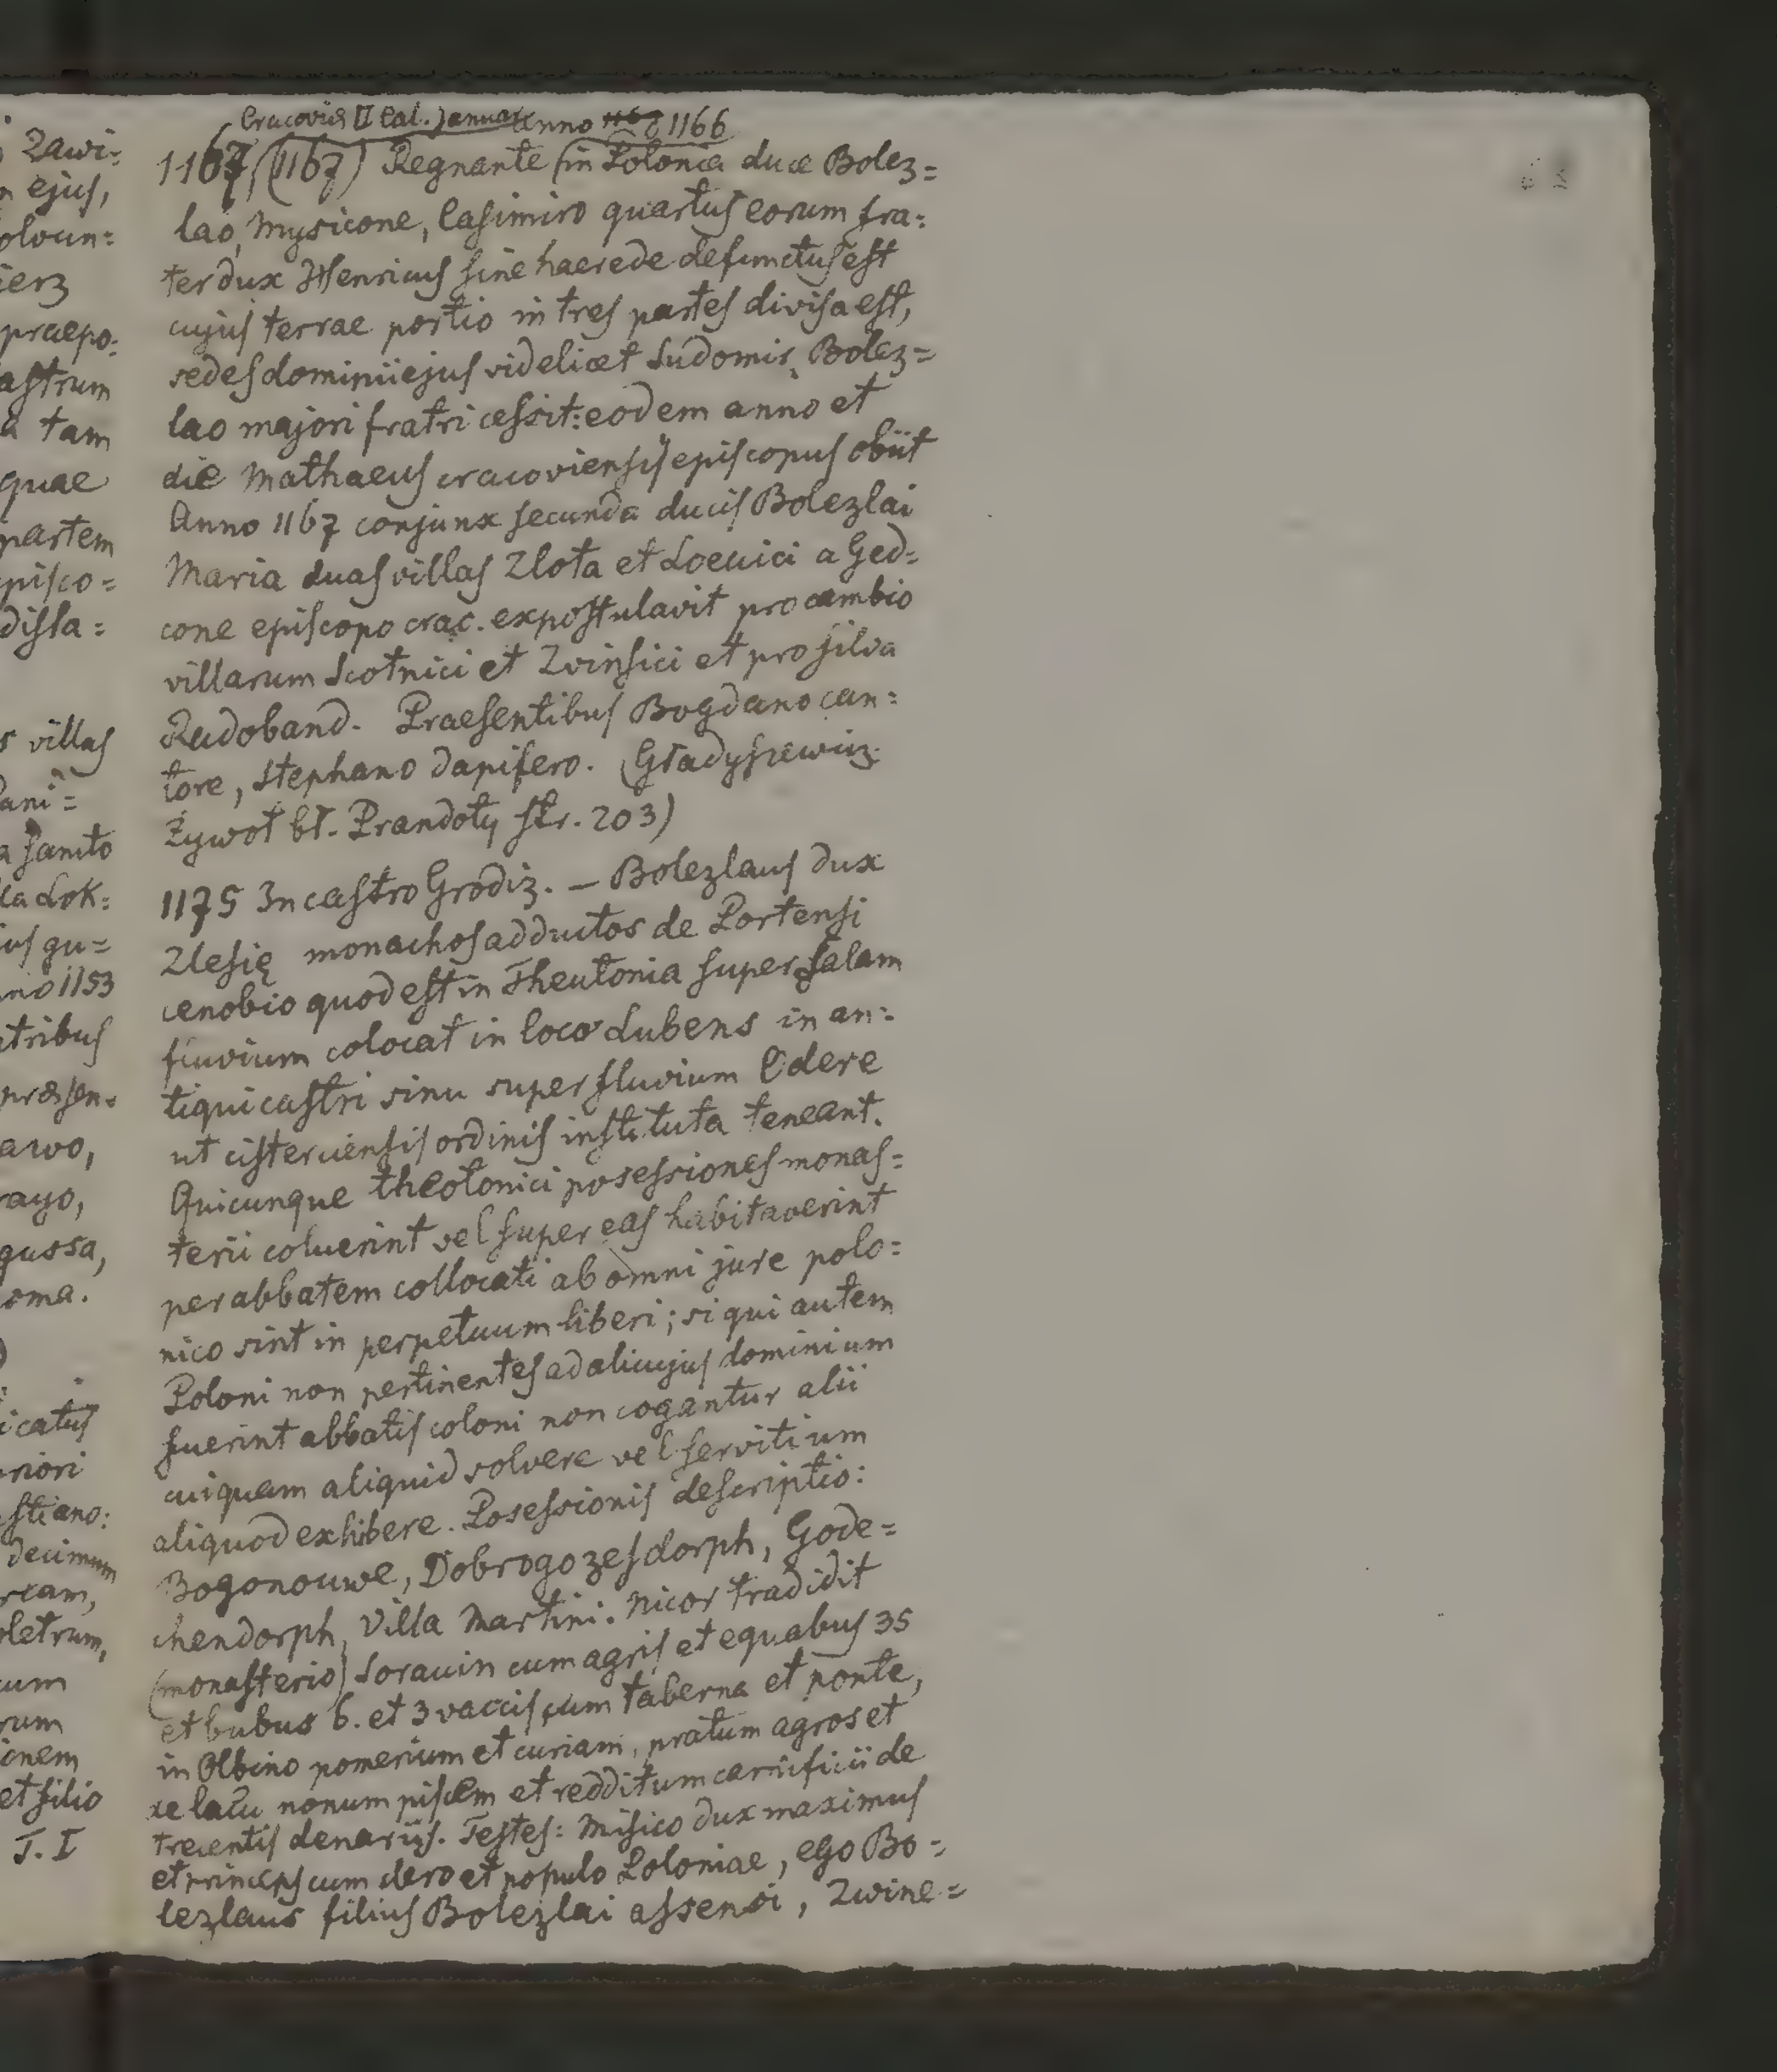 Zawi-
ejus,
olvun=
ierz
praepo-
astrum
a tam
quae
partem
episco=
dissa=
s villas
Dani=
a sancto
la Lok=
jus gu=
nno 1153
atribus
praesen=
awo,
rayo,
gussa,
oma.
icatus
riori
stiano:
decimum
rcam,
oletrum,
cum
rum
ionem
et filio
T. I
Cracovia II Cal. Januar Anno 1167 1166
1167, (1167) Regnante in Polonia duce Bolez=
lao, Mysicone, Casimiro quartus eorum fra=
ter dux Henricus sine haerede defunctus est
cujus terrae portio in tres partes divisa est,
sedes dominii ejus videlicet Sudomir, Bolez=
lao majori fratri cessit: eodem anno et
die Mathaeus cracoviensis episcopus obiit
Anno 1167 conjunx secunda ducis Bolezlai
Maria duas villas Zlota et Loevici a Ged=
cone episcopo crac. expostulavit pro cambio
villarum Scotnici et Zvinsici et pro silva
Radoband. Praesentibus Bogdano can=
tore, Stephano dapifero. (Gładyszewicz
Żywot bł. Prandoty str. 203)
1175 In castro Grodiz. — Bolezlaus dux
Zlesię monachos adductos de Portensi
cenobio quod est in Theutonia super Salam
fluvium colocat in loco Lubens in an=
tiqui castri sinu super fluvium Odere
ut cisterciensis ordinis instituta teneant.
Quicunque theotonici posessiones monas=
terii coluerint vel super eas habitaverint
per abbatem collocati ab omni jure polo=
nico sint in perpetuum liberi; si qui autem
Poloni non pertinentes ad alicujus dominium
fuerint abbatis coloni non cogantur alii
cuiquam aliquid solvere vel servitium
aliquod exhibere. Posessionis descriptio:
Bogonouwe, Dobrogozesdorph, Gode=
chendorph, Villa Martini. Nicor tradidit
(monasterio) Soravin cum agris et equabus 35
et bubus 6. et 3 vaccis cum taberna et ponte,
in Olbino pomerium et curiam, pratum agros et
nonum piscem et redditum carnificii de
trecentis denariis. Testes: Misico dux maximus
et princeps cum clero et populo Poloniae, ego Bo=
lezlaus filius Bolezlai assensi, Zwine=